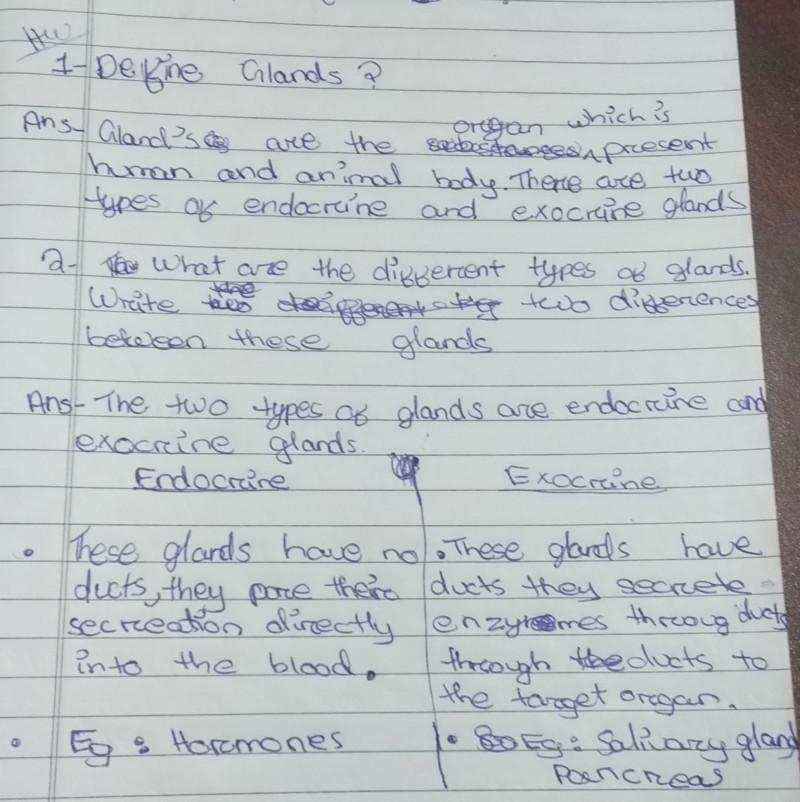 HW
1- Define Glands?
Ans- Gland's are the organ which is present
human and animal body. There are two
types of endocrine and exocrine glands
2- What are the different types of glands.
Write two differences
between these glands
Ans- The two types of glands are endocrine and
exocrine glands.
Endocrine Exocrine
• These glands have no
ducts, they pore their
secreation directly
into the blood.
• Eg: Hormones
• These glands have
ducts they secrete
enzymes throug ducts
through ducts to
the target organ.
• Eg: Salivary gland
Pancreas